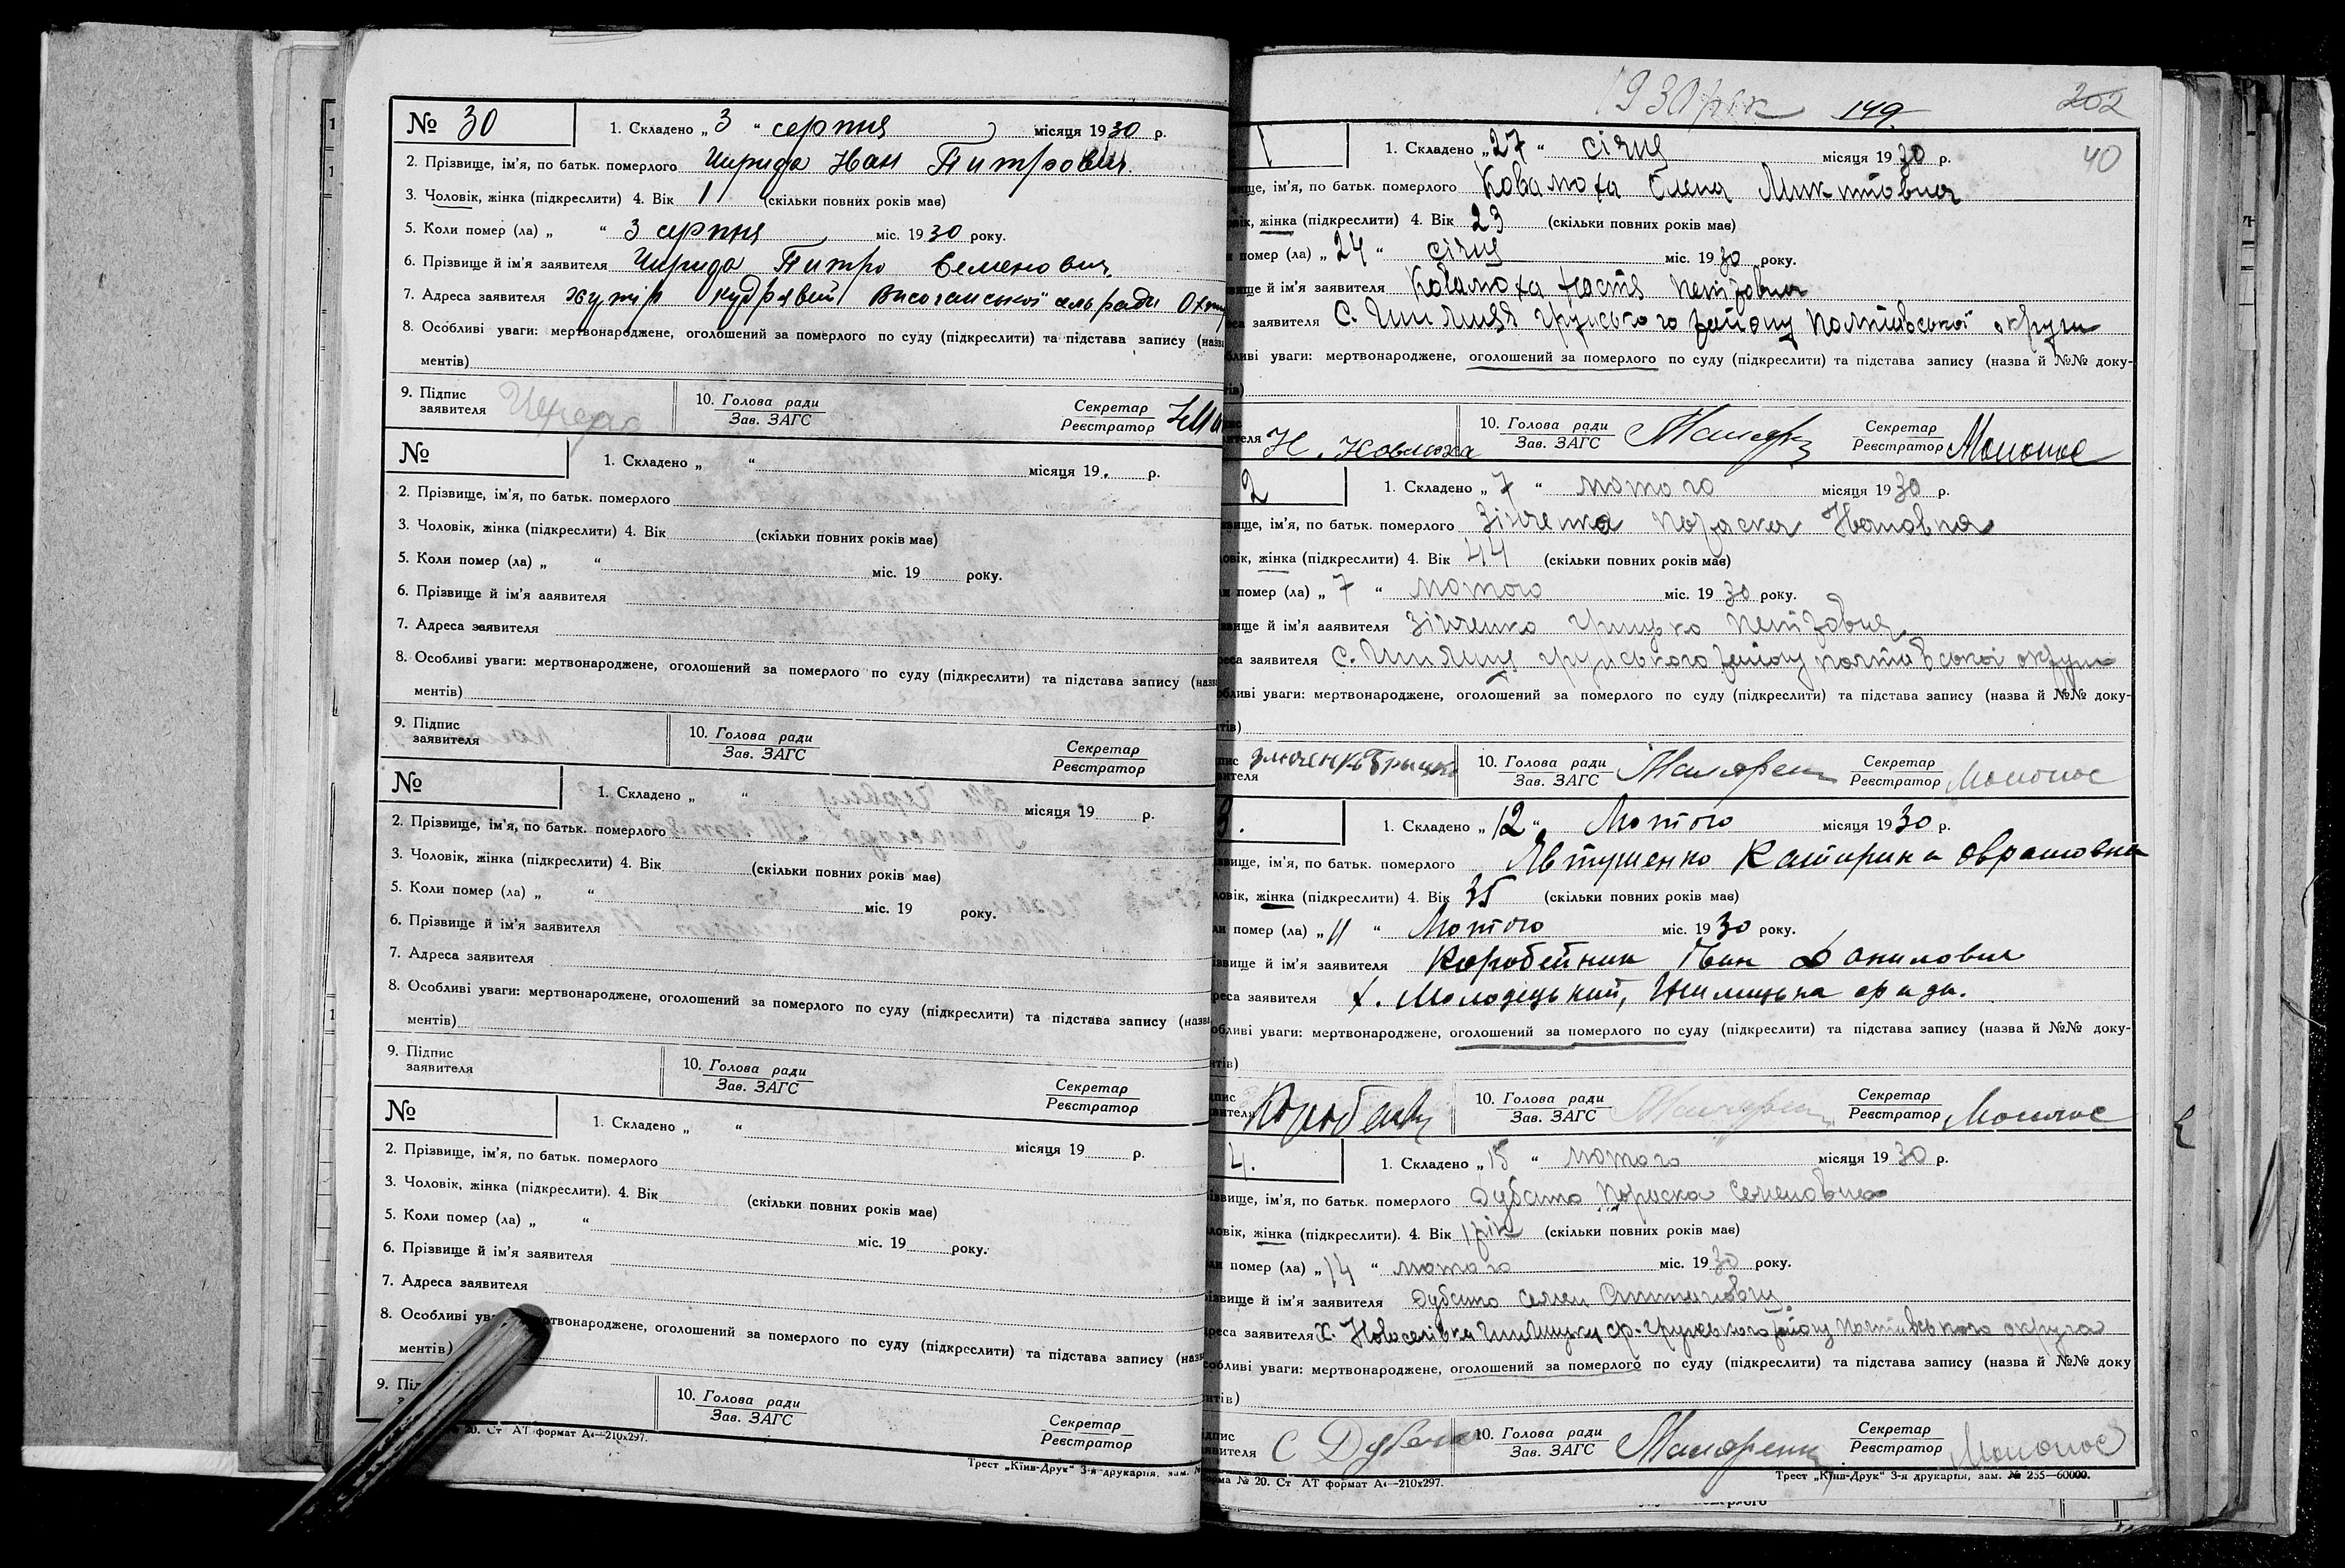 № 30
1. Складено „ 3 “ серпня місяця 1930 р.
2. Прізвище, ім'я, по батьк. померлого Чирида Иван Питрович.
3. Чоловік, жінка (підкреслити) 4. Вік 1 (скільки повних років має)
5. Коли помер (ла) „ “ 3 серпня міс. 1930 року.
6. Прізвище й ім'я заявителя Чирида Питро Семенович.
7. Адреса заявителя хутір Кудрявий Височанської сельради
8. Особливі уваги: мертвонароджене, оголошений за померлого по суду (підкреслити) та підстава запису (назва
ментів)
9. Підпис заявителя Черида 10. Голова ради Зав. ЗАГС Секретар Реєстратор
№
1. Складено „ “ місяця 19 . р.
2. Прізвище, ім'я, по батьк. померлого
3. Чоловік, жінка (підкреслити) 4. Вік (скільки повних років має)
5. Коли помер (ла) „ “ міс. 19 року.
6. Прізвище й ім'я ааявителя
7. Адреса заявителя
8. Особливі уваги: мертвонароджене, оголошений за померлого по суду (підкреслити) та підстава запису (назва
ментів)
9. Підпис заявителя 10. Голова ради Зав. ЗАГС Секретар Реєстратор
№
1. Складено „ “ місяця 19 р.
2. Прізвище, ім'я, по батьк. померлого
3. Чоловік, жінка (підкреслити) 4. Вік (скільки повних років має)
5. Коли помер (ла) „ “ міс. 19 року.
6. Прізвище й ім'я заявителя
7. Адреса заявителя
8. Особливі уваги: мертвонароджене, оголошений за померлого по суду (підкреслити) та підстава запису (назва
ментів)
9. Підпис заявителя 10. Голова ради Зав. ЗАГС Секретар Реєстратор
№
1. Складено „ “ місяця 19 р.
2. Прізвище, ім'я, по батьк. померлого
3. Чоловік, жінка (підкреслити). 4. Вік (скільки повних років має)
5. Коли помер (ла) „ “ міс. 19 року.
6. Прізвище й ім'я заявителя
7. Адреса заявителя
8. Особливі ува твонароджене, оголошений за померлого по суду (підкреслити) та підстава запису (назва
ментів)
9. Під 10. Голова ради Зав. ЗАГС Секретар Реєстратор
20. Ст АТ формат А4—210x297.
Трест „Київ-Друк“ 3-я друкарня, зам. №
1930 рік 149 202
40
1
1. Складено „ 27 “ січня місяця 1930 р.
вище, ім'я, по батьк. померлого Ковалюха Олена Микитовна
вік, жінка (підкреслити) 4. Вік 23 (скільки повних років має)
помер (ла) „ 24 “ січня міс. 1930 року.
вище й ім'я заявителя Ковалюха Настя Петровна
заявителя С. Шилиця Грунського району Полтавської округи
бливі уваги: мертвонароджене, оголошений за померлого по суду (підкреслити) та підстава запису (назва й №№ доку-
тів)
Н. Ковлюха 10. Голова ради Зав. ЗАГС Секретар Реєстратор
2
1. Складено „ 7 “ лютого місяця 1930 р.
вище, ім'я, по батьк. померлого Зінченко Пораска Ивановна
овік, жінка (підкреслити) 4. Вік 44 (скільки повних років має)
помер (ла) „ 7 “ лютого міс. 1930 року.
вище й ім'я ааявителя Зінченко Грицько Петрович
еса заявителя С. Шилиця Грунського району полтавської округи
обливі уваги: мертвонароджене, оголошений за померлого по суду (підкреслити) та підстава запису (назва й №№ доку-
тів)
Зінченко Грицько 10. Голова ради Зав. ЗАГС Секретар Реєстратор
3.
1. Складено „ 12 “ Лютого місяця 1930 р.
вище, ім'я, по батьк. померлого Явтушенко Катирина Оврамовна
овік, жінка (підкреслити) 4. Вік 35 (скільки повних років має)
ли помер (ла) „ 11 “ Лютого міс. 1930 року.
ізвище й ім'я заявителя Коробейник Данилович
реса заявителя х. Молодецький, сради.
обливі уваги: мертвонароджене, оголошений за померлого по суду (підкреслити) та підстава запису (назва й №№ доку-
нтів)
10. Голова ради Зав. ЗАГС Секретар Реєстратор
4.
1. Складено „ 15 “ лютого місяця 1930 р.
ізвище, ім'я, по батьк. померлого Пораска Семеновна
ловік, жінка (підкреслити). 4. Вік 1 рік (скільки повних років має)
ли помер (ла) „ 14 “ лютого міс. 1930 року.
різвище й ім'я заявителя Семен
дреса заявителя Х. Новоселівка ср. Грунського району Полтавського округа
собливі уваги: мертвонароджене, оголошений за померлого по суду (підкреслити) та підстава запису (назва й №№ доку
ентів)
10. Голова ради Зав. ЗАГС Секретар Реєстратор
орма № 20. Ст АТ формат А4—210x297.
Трест „Київ-Друк“ 3-я друкарня, зам. № 255—60000.